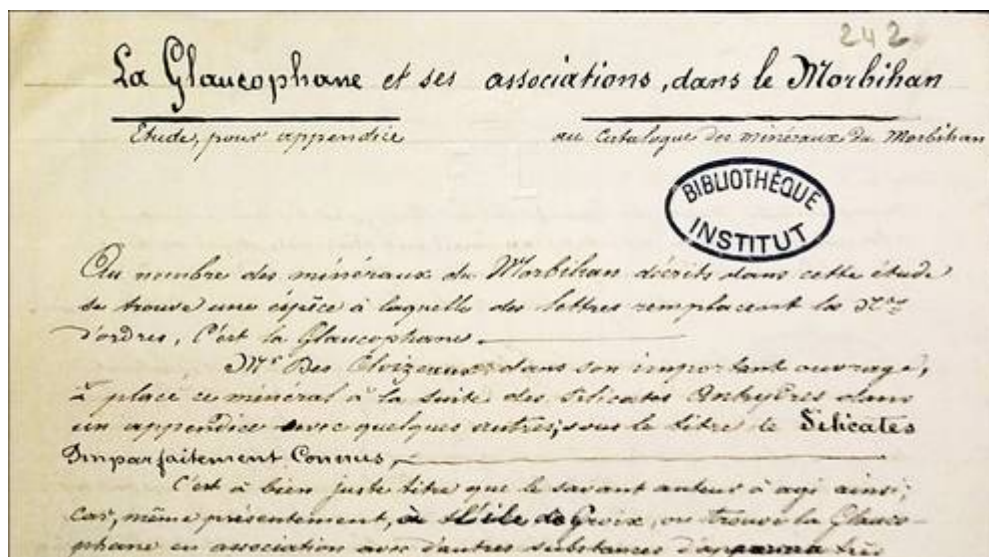 242
La Glaucophane et ses associations, dans le Morbihan
Etude, pour appendice au Catalogue des minéraux du Morbihan
BIBLIOTHÈQUE
INSTITUT
Au nombre des minéraux du Morbihan décrits dans cette étude
se trouve une espèce à laquelle des lettres remplacent les Nos
d'ordres, C'est la Glaucophane.
Mr Des Cloizeaux dans son important ouvrage,
à placé ce minéral à la suite des Silicates Anhydres dans
un appendice avec quelques autres, sous le titre de Silicates
Imparfaitement Connus,
C'est à bien juste titre que le savant auteur à agi ainsi;
car, même présentement, à l'île de Groix, on trouve la Glauco-
phane en association avec d'autres substances